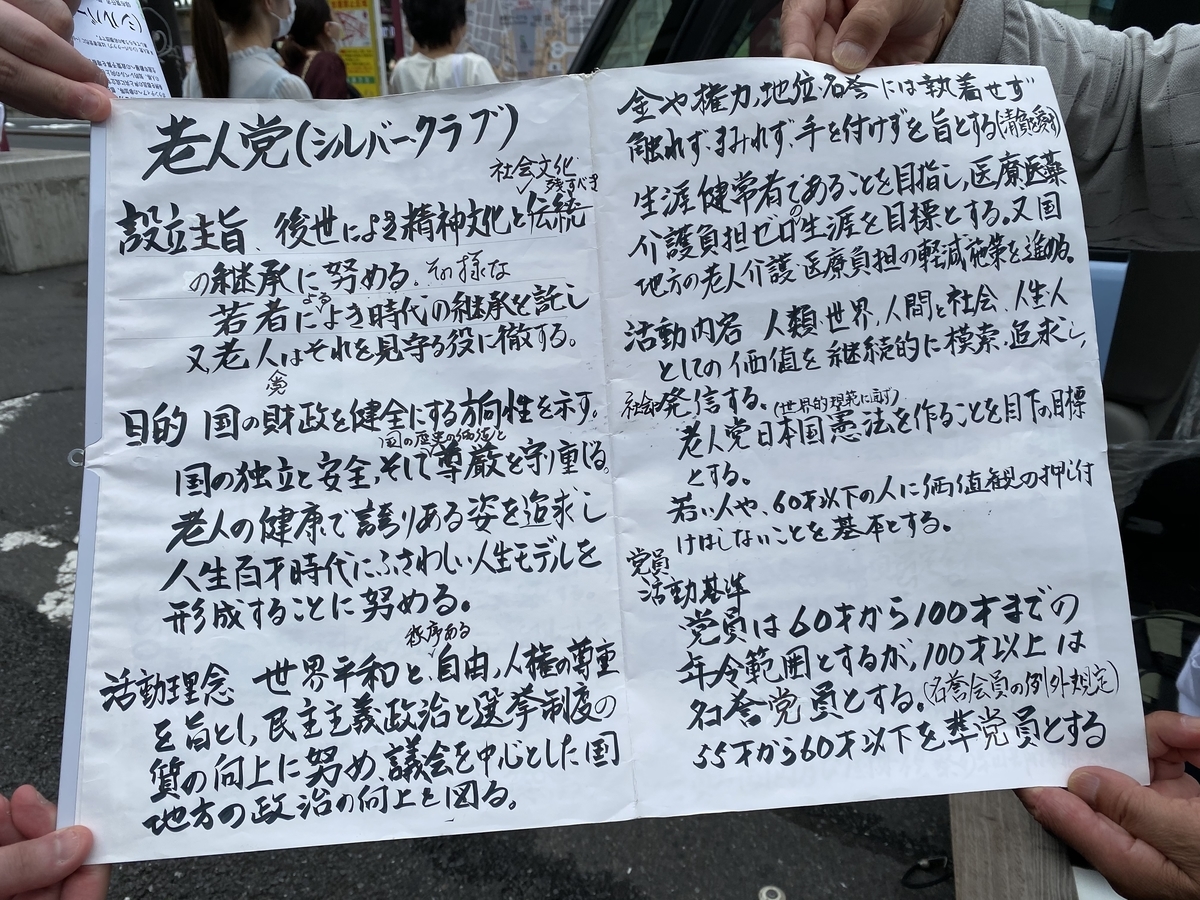 老人党(シルバークラブ)
社会文化
残すべき
設立主旨、後世によき精神文化と伝統
の継承に努める。その様な
よる
若者によき時代の継承を託し
又、老人はそれを見守る役に徹する。
党
目的 国の財政を健全にする方向性を示す。
国の歴史の価値と
国の独立と安全、そして尊厳を守り重じる。
老人の健康で誇りある姿を追求し
人生百才時代にふさわしい人生モデルを
形成することに努める。
秩序ある
活動理念 世界平和と、自由、人権の尊重
を旨とし、民主主義政治と選挙制度の
質の向上に努め、議会を中心とした国
地方の政治の向上を図る。
金や権力、地位、名誉には執着せず
触れず、まみれず、手を付けずを旨とする(清貧を愛す)
生涯健常者であることを目指し、医療医薬
の
介護負担ゼロ生涯を目標とする。又国
地方の老人介護医療負担の軽減施策を進める。
活動内容 人類、世界、人間と社会、人生人
としての価値を継続的に模索、追求し、
社会発信する。(世界的規範に司ず)
老人党日本国憲法を作ることを目下の目標
とする。
若い人や、60才以下の人に価値観の押し付
けはしないことを基本とする。
党員
活動基準
党員は60才から100才までの
年令範囲とするが、100才以上は
名誉党員とする。(名誉会員の例外規定)
55才から60才以下を準党員とする